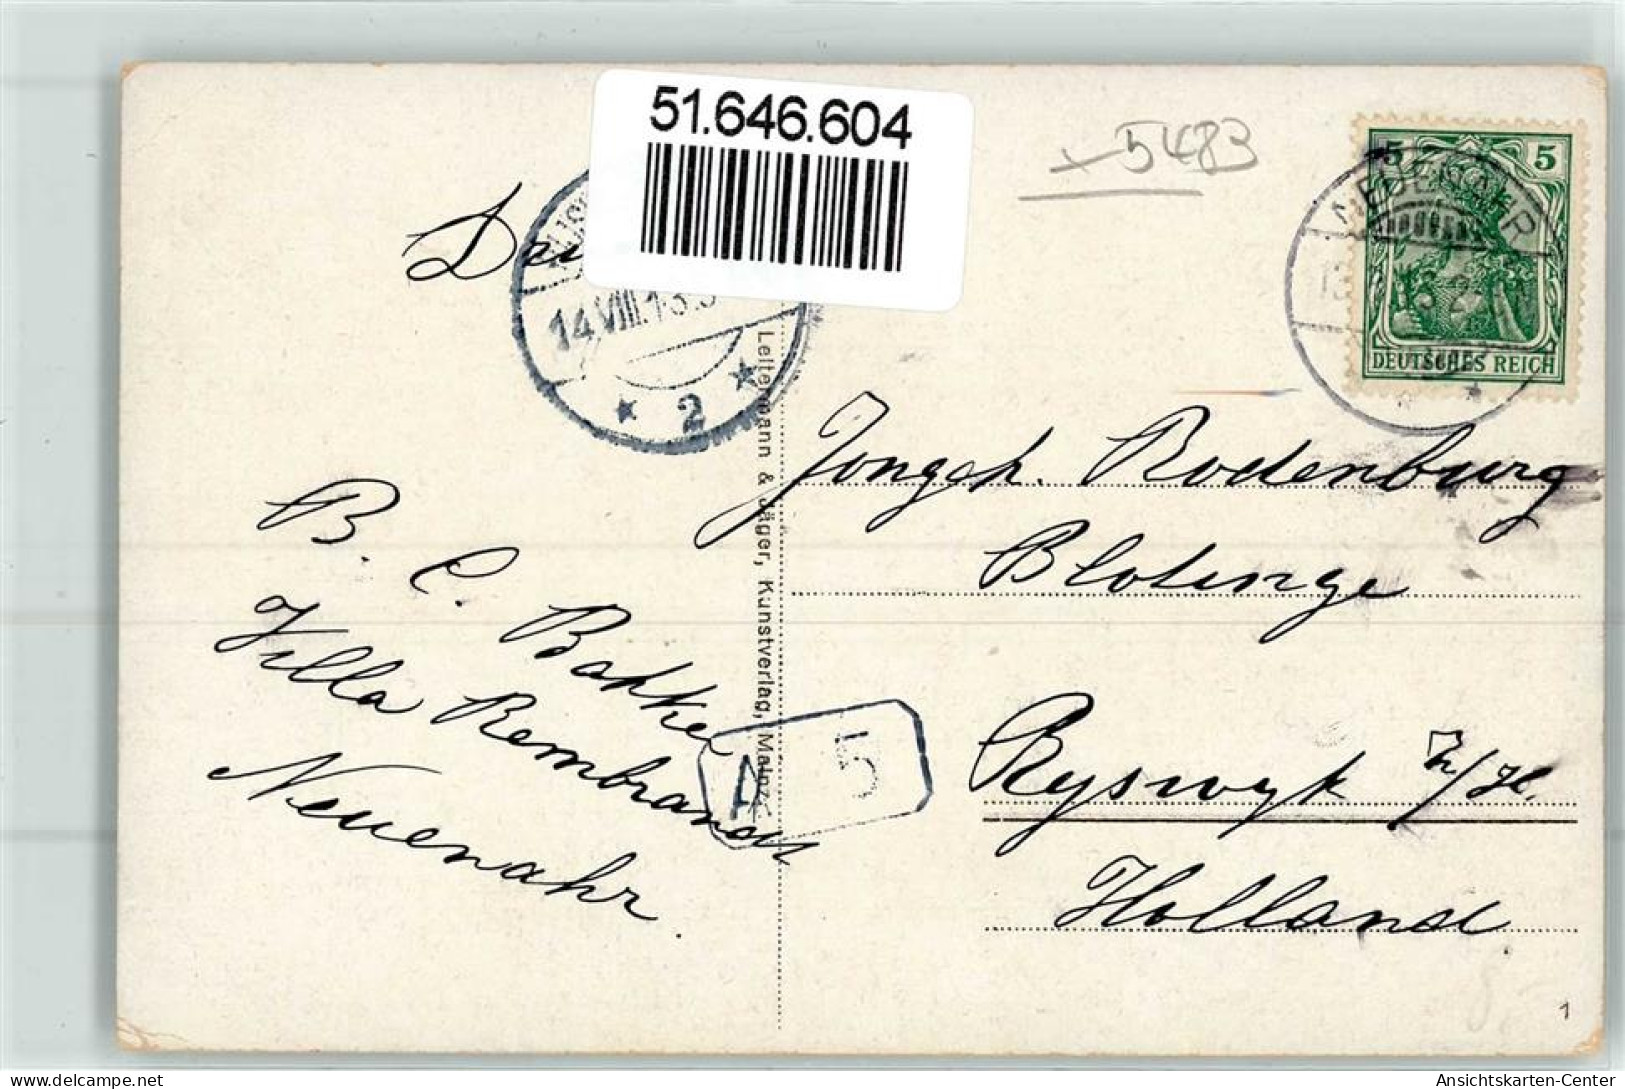 51.646.604
5483
5 5
DEUTSCHES REICH
14.VIII.13.
* 2 *
Leitermann & Jäger, Kunstverlag, Mainz
Jongeh. Rodenburg
Blotinge
Ryswyk Z/H.
Holland
B. C. Bakker
Villa Rembrandt
Neuenahr.
A 5
1
Ansichtskarten-Center